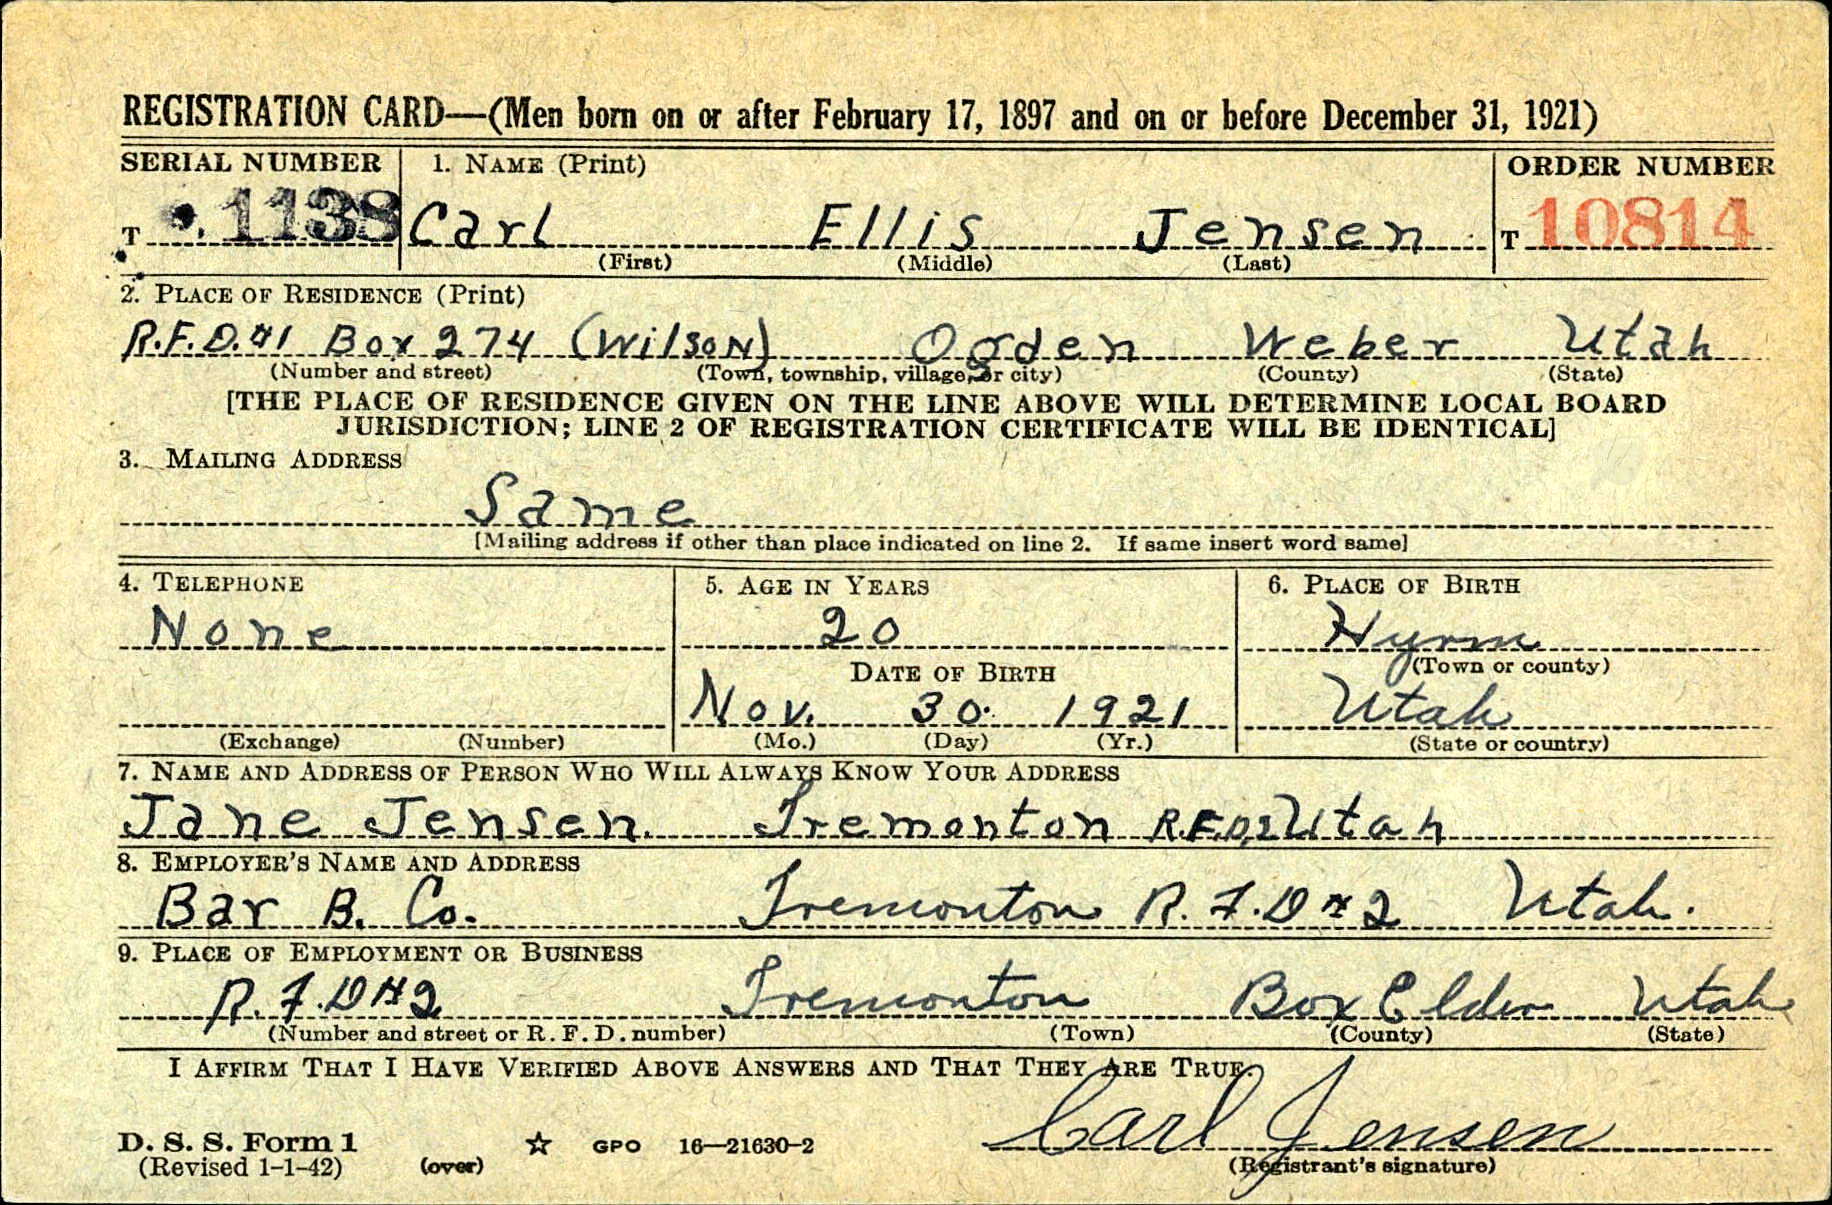 REGISTRATION CARD—(Men born on or after February 17, 1897 and on or before December 31, 1921)
SERIAL NUMBER 1. NAME (Print) ORDER NUMBER
T 1138 Carl Ellis Jensen T 10814
(First) (Middle) (Last)
2. PLACE OF RESIDENCE (Print)
R.F.D.#1 Box 274 (Wilson) Ogden Weber Utah
(Number and street) (Town, township, village, or city) (County) (State)
[THE PLACE OF RESIDENCE GIVEN ON THE LINE ABOVE WILL DETERMINE LOCAL BOARD
JURISDICTION; LINE 2 OF REGISTRATION CERTIFICATE WILL BE IDENTICAL]
3. MAILING ADDRESS
Same
[Mailing address if other than place indicated on line 2. If same insert word same]
4. TELEPHONE 5. AGE IN YEARS 6. PLACE OF BIRTH
None 20 Hyrm
DATE OF BIRTH (Town or county)
Nov. 30. 1921 Utah
(Exchange) (Number) (Mo.) (Day) (Yr.) (State or country)
7. NAME AND ADDRESS OF PERSON WHO WILL ALWAYS KNOW YOUR ADDRESS
Jane Jensen. Tremonton R.F.D.2 Utah
8. EMPLOYER'S NAME AND ADDRESS
Bar B. Co. Tremonton R.F.D #2 Utah.
9. PLACE OF EMPLOYMENT OR BUSINESS
R.F.D #2 Tremonton Box Elder Utah
(Number and street or R. F. D. number) (Town) (County) (State)
I AFFIRM THAT I HAVE VERIFIED ABOVE ANSWERS AND THAT THEY ARE TRUE.
Carl Jensen
D. S. S. Form 1 ☆ GPO 16—21630-2
(Revised 1-1-42) (over) (Registrant's signature)